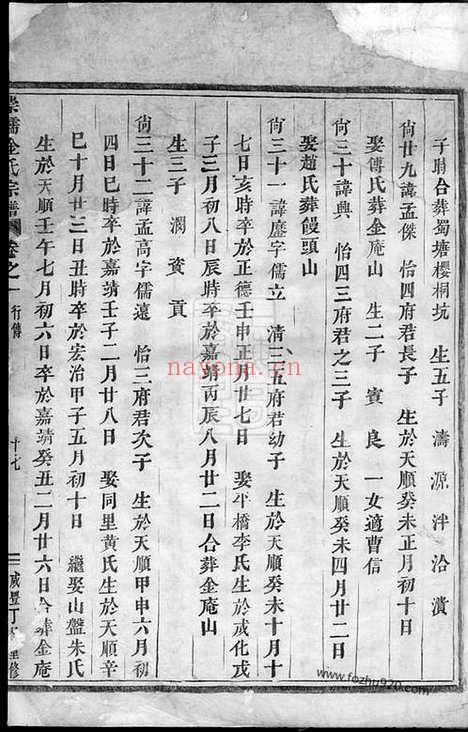 子時合葬蜀塘櫻桐坑　生五子　濤　源　泮　洽　濱
尙廿九諱孟傑　怡四府君長子　生於天順癸未正月初十日
娶傅氏葬金庵山　生二子　賓　良　一女適曹信
尙三十諱興　怡四三府君之三子　生於天順癸未四月廿二日
娶趙氏葬饅頭山
尙三十一諱歷字儒立　淸三五府君幼子　生於天順癸未十月十
七日亥時卒於正德壬申正月廿七日　娶平橋李氏生於成化戊
子三月初八日辰時卒於嘉靖丙辰八月廿二日合葬金庵山
生三子　潤　資　貢
尙三十二諱孟高字儒遠　怡三府君次子　生於天順甲申六月初
四日巳時卒於嘉靖壬子二月廿八日　娶同里黃氏生於天順辛
巳十月廿三日丑時卒於宏治甲子五月初十日　繼娶山盤朱氏
生於天順壬午七月初六日卒於嘉靖癸丑二月廿六日合葬金庵
金氏宗譜　卷之一　行傳　十七　咸豐丁 修
nayona.cn
www.fozhu920.com